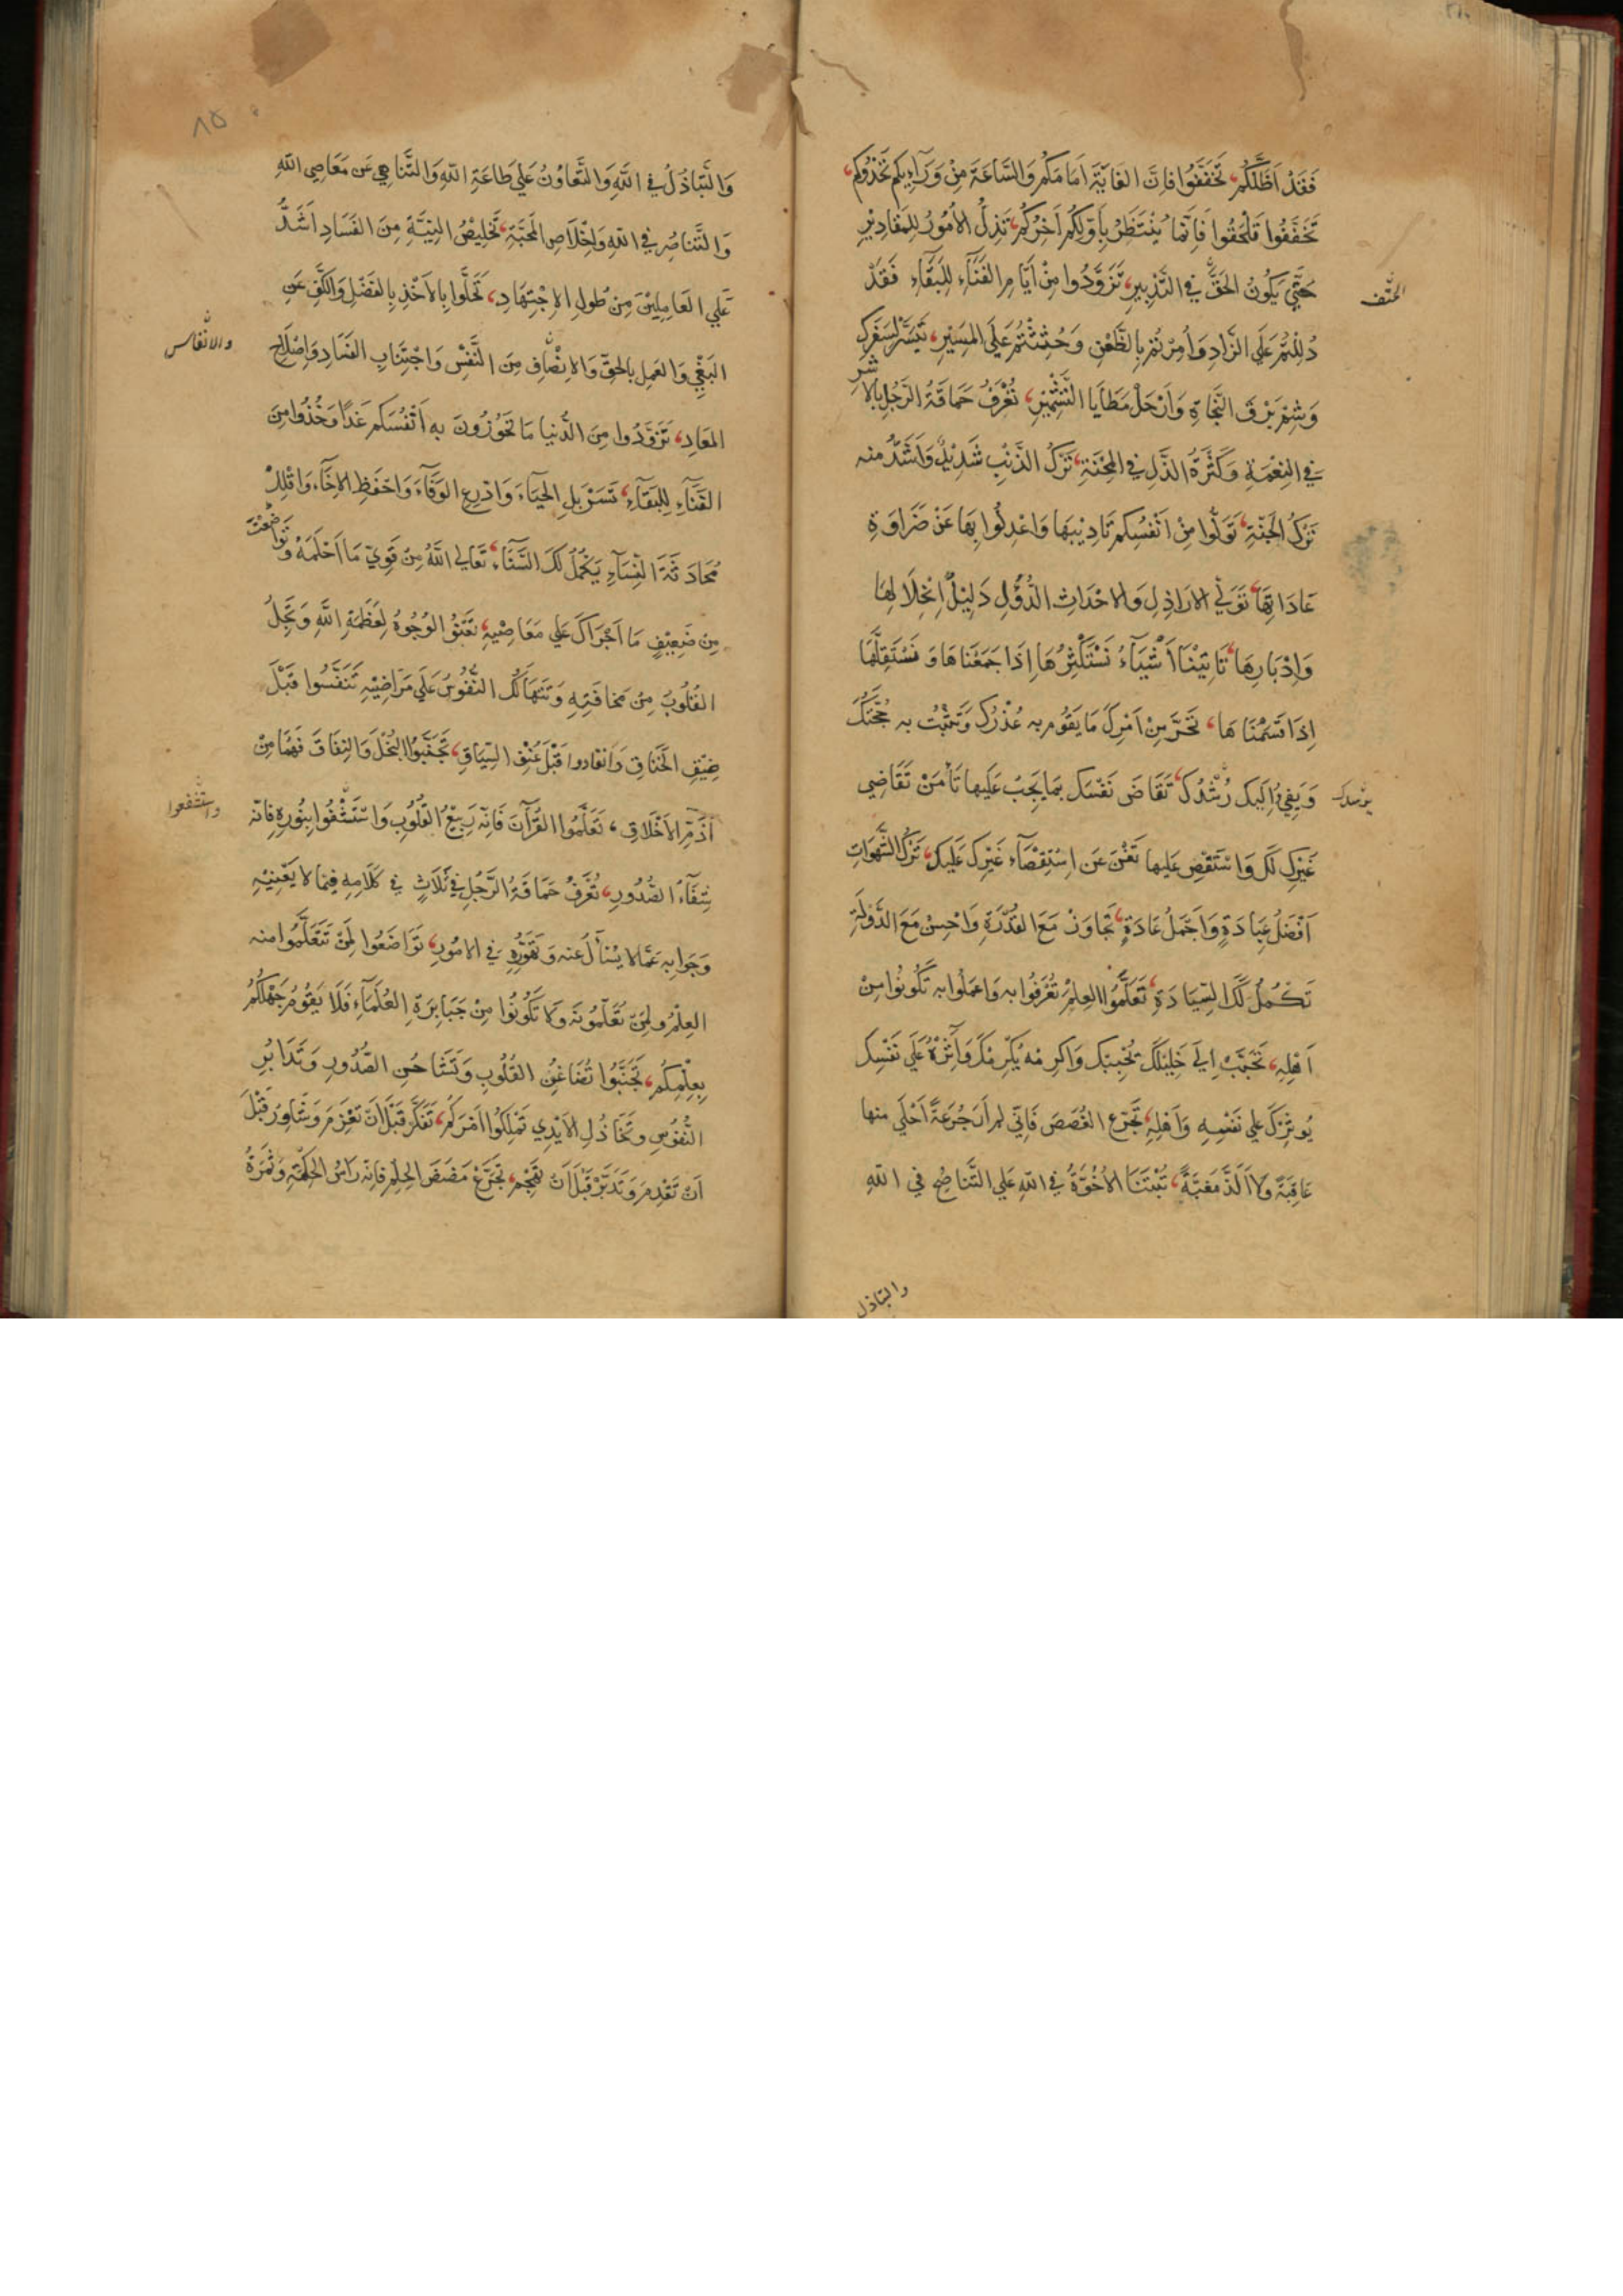 فَقَدْ اَظَلَّكُمْ، تَخَفَّفُوا فَاِنَّ الغَايَةَ اَمَامَكُمْ وَالسَّاعَةَ مِنْ وَرَآءِكُم تَحْدُوكُم،
تَخَفَّفُوا تَلْحَقُوا فَاِنَّمَا يُنْتَظَرُ بِاَوَّلِكُمْ آخِرُكُمْ، تَذِلُّ الاُمُورُ لِلمَقَادِيْرِ
حَتّٰي يَكُونُ الحَقُّ فِي التَّدْبِيرِ، تَزَوَّدُوا مِنْ اَيَّامِ الفَنَآءِ لِلبَقَآءِ فَقَدْ
الحتف
دُلِلْتُمْ عَلَي الزَّادِ وَاُمِرْتُمْ بِالظَّعْنِ وَحُثِثْتُمْ عَلَي المَسِيْرِ، تَيَسَّرْ لِسَفَرِكَ
وَشِمْ بَرْقَ النَّجَاةِ وَارْحَلْ مَطَايَا التَّشْمِيْرِ، تُعْرَفُ حَمَاقَةُ الرَّجُلِ بِالاَشَرِ
فِي النِعْمَةِ وَكَثْرَةُ الذُّلِ فِي المِحْنَةِ، تَرْكُ الذَّنْبِ شَدِيْدٌ وَاَشَدُّ منه
تَرْكُ الجَنَّةِ، تَوَلَّوا مِنْ اَنْفُسِكُم تَادِيْبَهَا وَاعْدِلُوا بِهَا عَنْ ضَرَاوَةِ
عَادَاتِهَا، تَوَلِّي الارَاذِلِ وَالاَحْدَاثِ الدُّوَلَ دَلِيْلُ اِنْحِلَالِهَا
وَاِدْبَارِهَا، تَاتِيْنَا اَشْيَآءُ نَسْتَكْثِرُهَا اِذَا جَمَعْنَاهَا وَنَسْتَقِلُّهَا
اِذَا قَسَمْنَاهَا، تَحَرَّ مِنْ اَمْرِكَ مَا يَقُومُ بِه عُذْرُكَ وَتَثْبُتُ بِه حُجَّتُكَ
وَيَفِيْ اِلَيكَ رُشْدُكَ، تَقَاضَ نَفْسَكَ بِمَا يَجِبُ عَلَيها تَأْمَنْ تَقَاضِي
غَيْرِكَ لَكَ وَاسْتَقْصِ عَلَيها تَغْنَ عَن اسْتِقْصَآءِ غَيْرِكَ عَلَيكَ، تَرْكُ الشَّهَوَاتِ
اَفْضَلُ عِبَادَةٍ وَاَجْمَلُ عَادَةٍ، تَجَاوَزْ مَعَ القُدْرَةِ وَاَحْسِنْ مَعَ الدَّوْلَةِ
تَكْمُلْ لَكَ السِّيَادَةِ، تَعَلَّمُوا العِلْمَ تُعْرَفُوا بِه وَاعْمَلُوا بِه تَكُونُوا مِنْ
اَهْلِهِ، تَحَبَّبْ اِلَي خَلِيْلِكَ يُحْبِبْكَ وَاكْرِمْه يُكْرِمْكَ وَآثِرْهُ عَلَي نَفْسِكَ
يُوثِرْكَ عَلي نَفْسِهِ وَاَهْلِهِ، تَجَرَّع الغُصَصَ فَاِنِّي لم اَرَ جُرْعَةً اَحْلَي منها
عَاقِبَةً وَلَا اَلَذَّ مَغَبَّةً، تُبْتَنَا الاُخُوَّةُ فِي اللّٰهِ عَلي التَّنَاصُحِ فِي اللّٰهِ
والتباذل
٨٥
وَالتَّبَاذُلُ فِي اللّٰهِ وَالتَّعَاوُنُ عَلي طَاعَةِ اللّٰهِ وَالتَّنَاهِي عَن مَعَاصِي اللّٰهِ
وَالتَّنَاصُرِ فِي اللّٰهِ وَاِخْلَاصِ المَحَبَّةِ، تَخْلِيْصُ النِيَّةِ مِنَ الفَسَادِ اَشَدُّ
عَلَي العَامِلِيْنَ مِنْ طُولِ الاِجْتِهَادِ، تَحَلَّوا بِالاَخْذِ بِالفَضْلِ وَالكَفِّ عَنِ
البَغْيِ وَالعَمَلِ بِالحَقِّ وَالاِنْصَافِ مِنَ النَّفْسِ وَاجْتِنَابِ الفَسَادِ وَاِصْلَاحِ
المَعَادِ، تَزَوَّدُوا مِنَ الدُّنيا مَا تَحُوزُونَ بِه اَنْفُسَكُم غَدًا وَخُذُوا مِنَ
الفَنَآءِ لِلبَقَآءِ، تَسَرْبَلِ الحَيَآءَ وَادَّرِعِ الوَفَآءَ وَاحْفَظِ الاِخَآءَ وَاقْلِلْ
مُحَادَثَةَ النِّسَآءِ يَكْمُلْ لَكَ السَّنَآءُ، تَعَالَي اللّٰهُ مِنْ قَوِيٍّ مَا اَحْلَمَهُ وَتَوَاضَعْتَ
مِن ضَعِيْفٍ مَا اَجْرَاَكَ عَلي مَعَاصِيْهِ، تَعْنُو الوُجُوهُ لِعَظَمَةِ اللّٰهِ وَتَجِلُ
القُلُوبُ مِنْ مَخَافَتِهِ وَتَتَهَالَكُ النُّفُوسُ عَلَي مَرَاضِيْهِ تَنَفَّسُوا قَبْلَ
ضِيْقِ الخَنَاقِ وَانْقَادوا قَبْلَ عُنْفِ السِّيَاقِ، تَجَنَّبُوا البُخْلَ وَالنِفَاقَ فَهُمَا مِنْ
اَذَمِّ الاَخْلَاقِ، تَعَلَّمُوا القُرْآنَ فَاِنَّه رَبِيْعُ القُلُوبِ وَاسْتَشْفُوا بِنُورِهِ فَانّه
واستشفعوا
شِفَآءُ الصُّدُورِ، تُعْرَفُ حَمَاقَةُ الرَّجُلِ فِي ثَلَاثٍ فِي كَلَامِهِ فِيمَا لا يَعْنِيْهِ
وَجَوَابِهِ عَمَّا لا يُسْأَلُ عَنه وَتَهَوُّرِهِ فِي الامُورِ، تَوَاضَعُوا لِمَنْ تَتَعَلَّمُوا منه
العِلْمَ ولِمَنْ تُعَلِّمُونَهُ وَلَا تَكُونُوا مِنْ جَبَابِرَةِ العُلَمَآءِ فَلَا يَقُومُ جَهْلُكُمْ
بِعِلْمِكُم، تَجَنَّبُوا تَضَاغُنِ القُلُوبِ وَتَشَاحُنِ الصُّدُورِ وَتَدَابُرِ
النُّفُوسِ وَتَخَاذُلِ الاَيْدِي تَمْلِكُوا اَمْرَكُمْ، تَفَكَّرْ قَبْلَ اَنْ تَعْزِمَ وَشَاوِرْ قَبْلَ
اَنْ تَقْدِمَ وَتَدَبَّرْ قَبْلَ اَنْ تَهْجُمَ، تَجَرَّعْ مَضَضَ الحِلْمِ فَاِنّه رَاسُ الحِكْمَةِ وَثَمَرَةُ